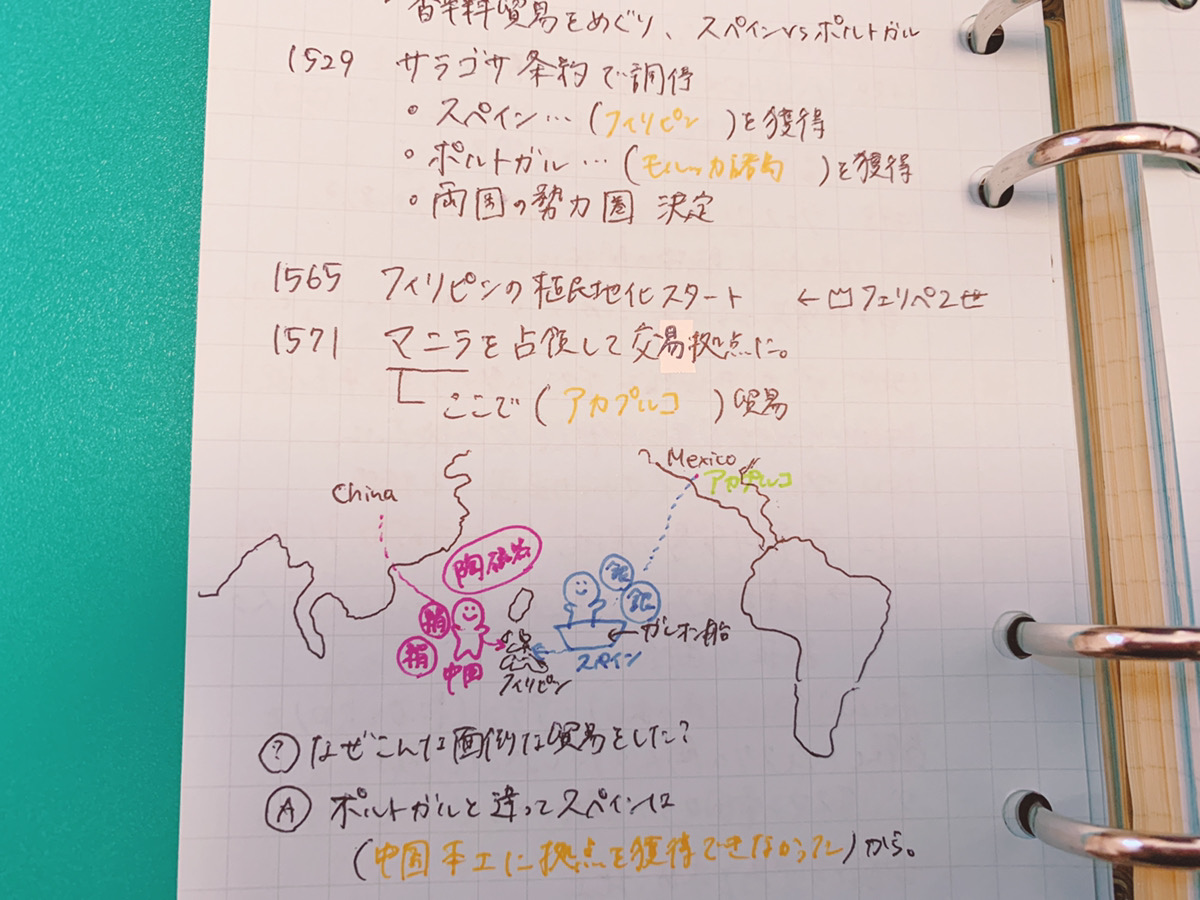 香辛料貿易をめぐり、スペインvsポルトガル
1529 サラゴサ条約で調停
• スペイン…(フィリピン)を獲得
• ポルトガル…(モルッカ諸島)を獲得
• 両国の勢力圏 決定
1565 フィリピンの植民地化スタート ← フェリペ2世
1571 マニラを占領して交易拠点に。
ここで(アカプルコ)貿易
Mexico
アカプルコ
China
陶磁器
銀
銀
絹
絹
中国
←ガレオン船
スペイン
フィリピン
? なぜこんな面倒な貿易をした?
A ポルトガルと違ってスペインは
(中国本土に拠点を獲得できなかった)から。